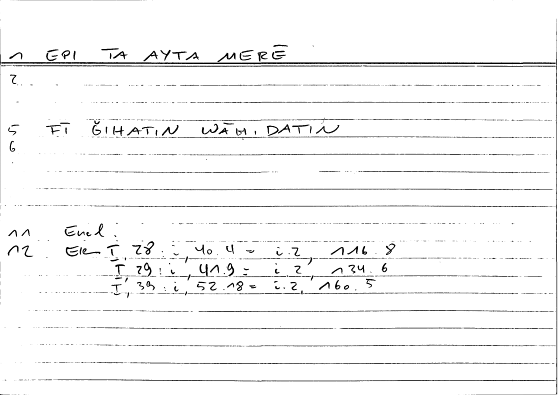 1 EPI TA AYTA MERĒ
2
5 FĪ ĞIHATIN WĀḤIDATIN
6
11 Eucl.
12 El I, 28 : i, 40.4 = i.2, 116.8
I, 29 : i, 41.9 = i.2, 134.6
I, 39 : i, 52.18 = i.2, 160.5